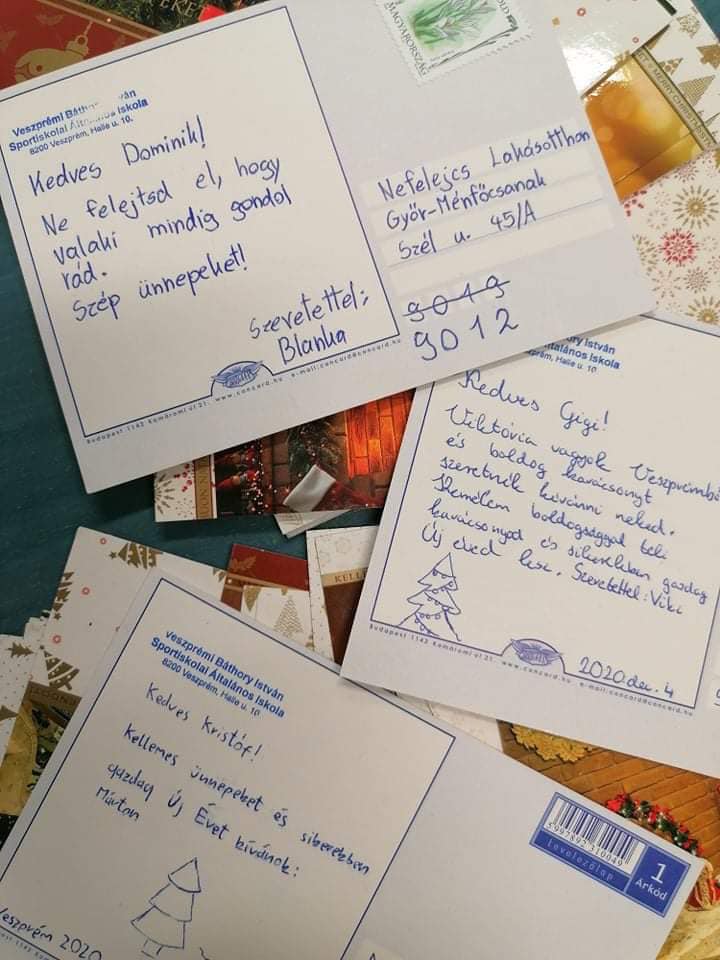 MAGYARORSZÁG
Veszprémi Báthory István
Sportiskolai Általános Iskola
8200 Veszprém, Halle u. 10.
Kedves Dominik!
Ne felejtsd el, hogy
valaki mindig gondol
rád.
Szép ünnepeket!
Szeretettel:
Blanka
Nefelejcs Lakásotthon
Győr-Ménfőcsanak
Szél u. 45/A
9019
9012
Budapest 1142 Komáromi út 21. www.concord.hu e-mail:concord@concord.hu
MERRY CHRISTMAS
Báthory István
Általános Iskola
Veszprém, Halle u. 10.
Kedves Gigi!
Viktória vagyok Veszprémbő
és boldog karácsonyt
szeretnék kívánni neked.
Remélem boldogsággal teli
karácsonyod és sikerekben gazdag
Új éved lesz. Szeretettel: Viki
Budapest 1142 Komáromi út 21. www.concord.hu e-mail:concord@concord.hu
2020 dec. 4
Veszprémi Báthory István
Sportiskolai Általános Iskola
8200 Veszprém, Halle u. 10.
Kedves Kristóf!
Kellemes ünnepeket és sikerekben
gazdag Új Évet kívánok:
Márton
Veszprém 2020
5997892 310049
Levelezőlap
1
Árkód